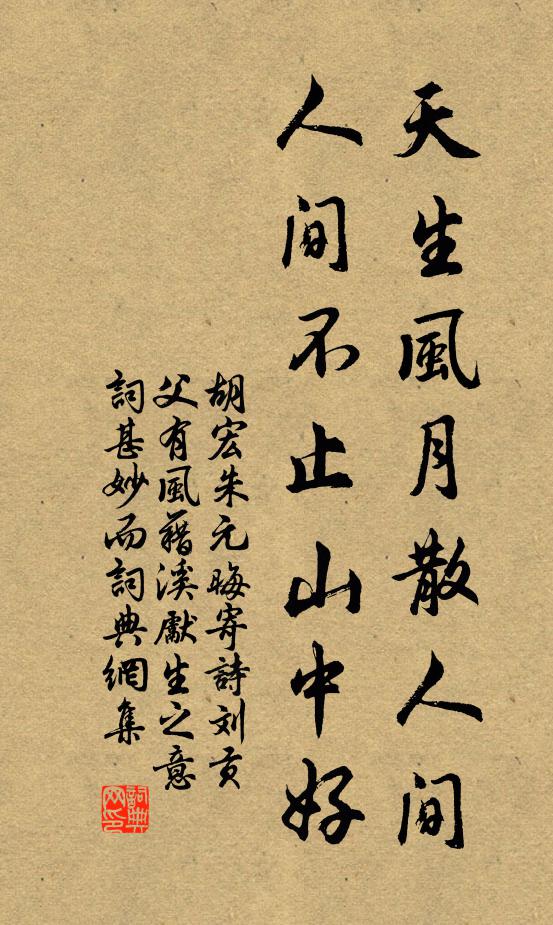 天生風月散人間
人間不止山中好
胡宏朱元晦寄詩刘贡
父有風藉溪獻生之意
詞甚妙而詞典網集
詞典
网印